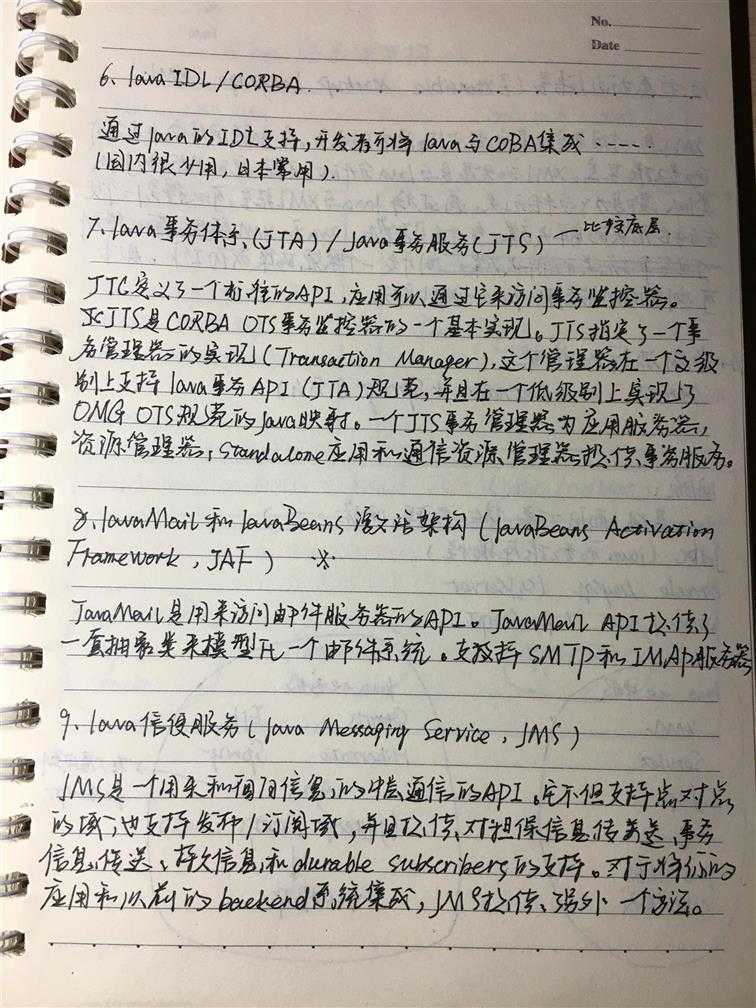 No.
Date
6、Java IDL/CORBA.
通过Java的IDL支持,开发者可将Java与COBA集成……
(国内很少用,日本常用).
7、Java事务体系(JTA)/Java事务服务(JTS) —比较底层.
JTC定义了一个标准的API,应用可以通过它来访问事务监控器。
JTS是CORBA OTS事务监控器的一个基本实现。JTS指定了一个事
务管理器的实现(Transaction Manager),这个管理器在一个高级
别上支持Java事务API(JTA)规范,并且在一个低级别上实现了
OMG OTS规范的Java映射。一个JTS事务管理器为应用服务器,
资源管理器,standalone应用和通信资源管理器提供事务服务。
8、JavaMail和JavaBeans激活架构(JavaBeans Activation
Framework,JAF) ※
JavaMail是用来访问邮件服务器的API。JavaMail API提供了
一套抽象类来模型化一个邮件系统。支持SMTP和IMAP服务器
9、Java信使服务(Java Messaging Service,JMS)
JMS是一个用来和相同信息的中层通信的API。它不但支持点对点
的域,也支持发布/订阅域,并且提供对担保信息传送,事务
信息传送、持久信息和durable subscribers的支持。对于将你的
应用和以前的backend系统集成,JMS提供、另外一个方法。